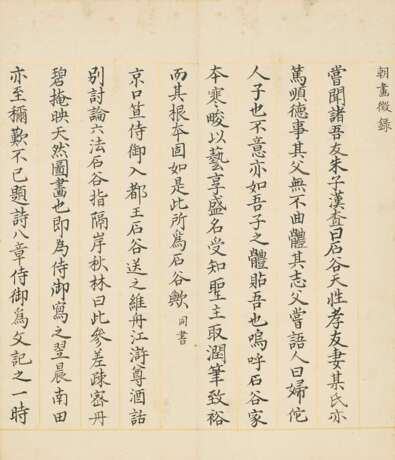 朝畫徵錄
嘗聞諸吾友朱子漢查曰石谷天性孝友妻某氏亦
篤順德事其父無不曲體其志父嘗語人曰婦佗
人子也不意亦如吾子之體貼吾也嗚呼石谷家
本寒畯以藝享盛名受知聖主取潤筆致裕
而其根本固如是此所為石谷歟 同書
京口笪侍御入都王石谷送之維舟江滸尊酒話
別討論六法石谷指隔岸秋林曰此參差疎密丹
碧掩映天然圖畫也即為侍御寫之翌晨南田
亦至稱歎不已題詩八章侍御為文記之一時